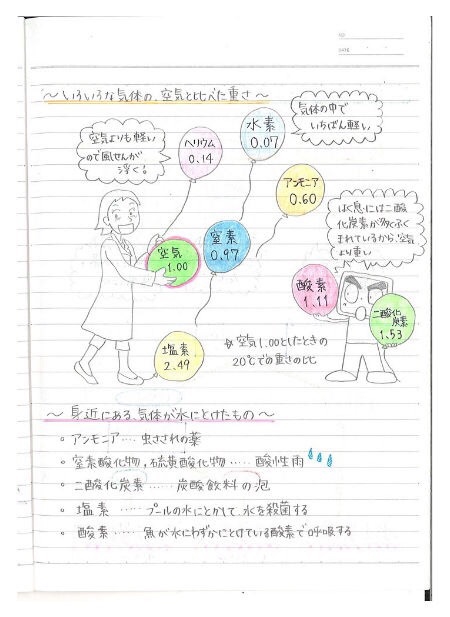 NO.
DATE
〜いろいろな気体の、空気と比べた重さ〜
空気よりも軽い
ので風せんが
浮く。
ヘリウム
0.14
水素
0.07
気体の中で
いちばん軽い
アンモニア
0.60
はく息には二酸
化炭素が多くふく
まれているから、空気
より重い
空気
1.00
窒素
0.97
酸素
1.11
二酸化
炭素
1.53
塩素
2.49
☆空気1.00としたときの
20℃での重さの比
〜身近にある、気体が水にとけたもの〜
・アンモニア…虫さされの薬
・窒素酸化物,硫黄酸化物……酸性雨
・二酸化炭素……炭酸飲料の泡
・塩素……プールの水にとかして、水を殺菌する
・酸素……魚が水にわずかにとけている酸素で呼吸する